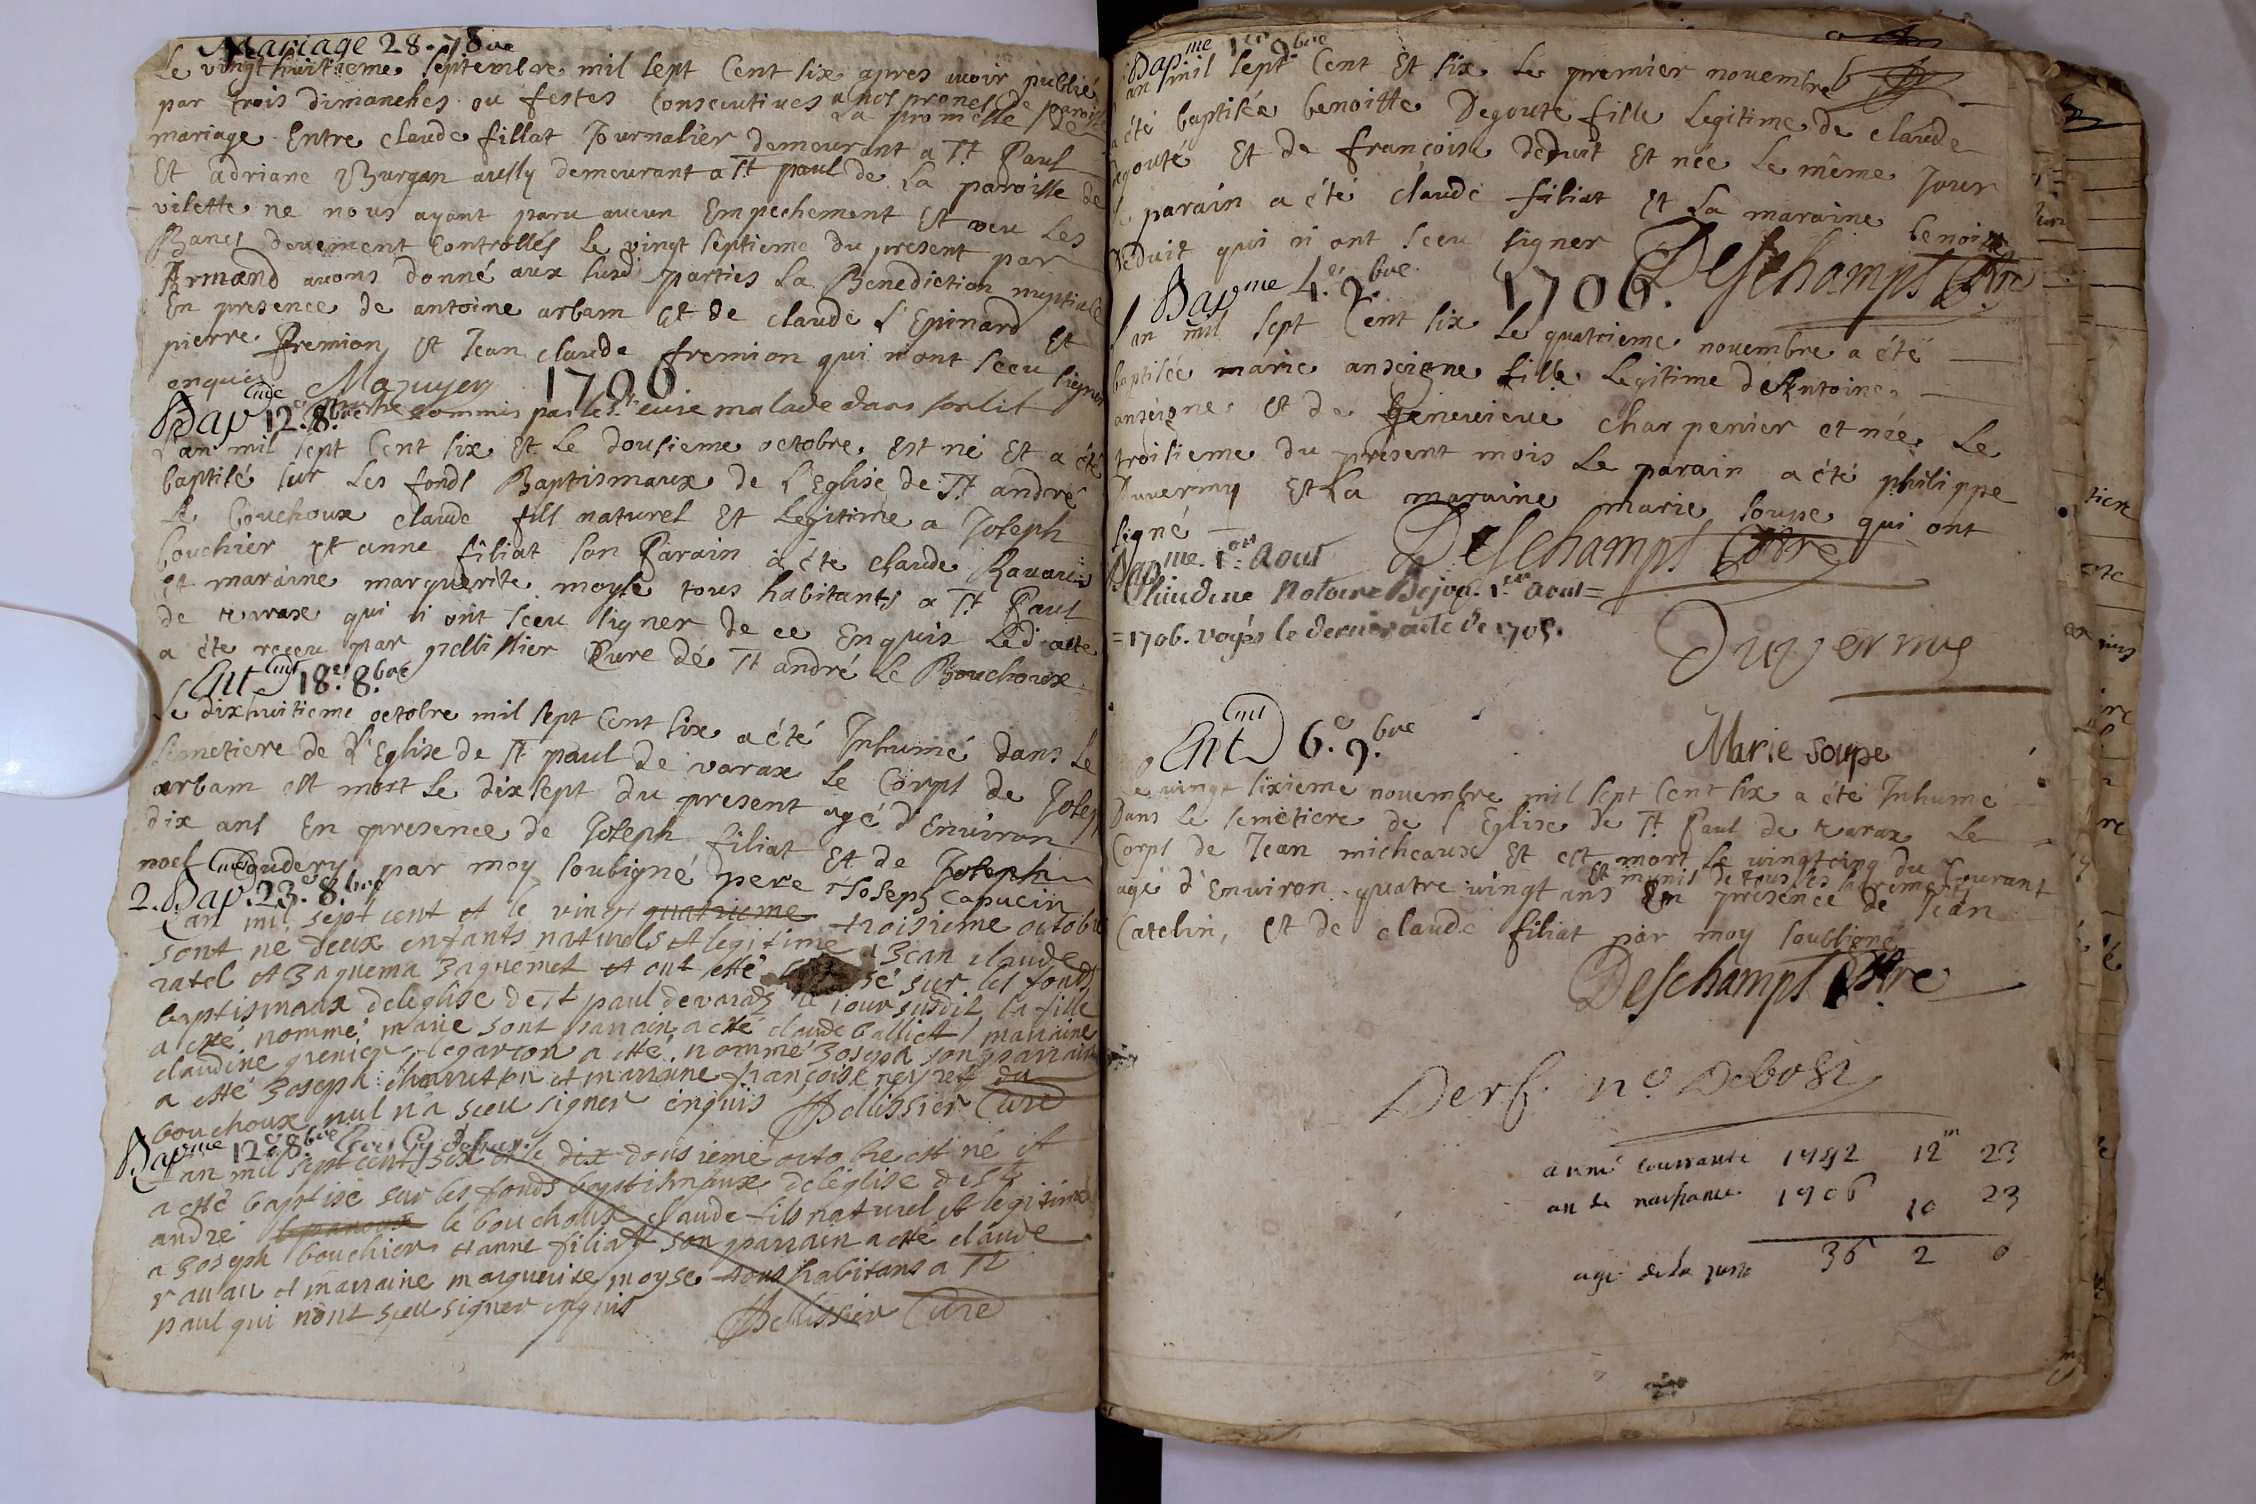 Mariage 28. 7 8bre
Le vingt huitieme septembre mil sept Cent six apres avoir publié
par trois dimanches ou festes Consecutives a nos prones de paroisse
La promesse de
mariage Entre claude fillat Journalier demeurant a St Paul
Et adriane Burgan aussy demeurant a St paul de La paroisse de
vilette ne nous ayant paru aucun Empechement Et veu Les
Bancs deuement Controllés Le vingt septieme du present par
Armand avons donné aux susd parties La Benediction nuptiale
En presence de antoine arbam Et de claude L'Epinard Et
pierre fremion Et Jean claude fremion qui n'ont sceu signer
enquis Mazuyer 1706.
Bap 12. 8.bre commis par le Sr cure malade dans son lit
L'an mil sept Cent six Et Le dousieme octobre Est né Et a été
baptisé sur Les fonds Baptismaux de L'Eglise de St andré
Le Bouchoux claude fils naturel Et Legitime a Joseph
bouchier Et anne filiat son Parain a éte claude Ravau
et maraine marguerite moyse tous habitants a St Paul
de varax qui n'ont sceu signer de ce Enquis Led acte
a éte receu par pellissier Cure de St andré Le Bouchoux
Ent 18.e 8.bre
Le dixhuitieme octobre mil sept Cent six a été Inhumé dans Le
semetiere de L'Eglise de St paul de varax Le Corps de Joseph
arbam est mort Le dixsept du present agé d'Environ
dix ans En presence de Joseph filiat Et de Joseph
noel Coudery par moy soubigné pere Joseph Capucin
2. Bap. 23. 8.bre
L'an mil sept cent et le vingt quatrieme troisieme octobre
sont ne deux enfants naturels et legitime a Jean claude
ratel et Jaquema Jaquemet et ont esté sé sur les fonds
baptismaux deleglise de St paul devaras le jour susdit la fille
a esté nommé marie sont parrain a esté claude balliet marraine
claudine grenier le garcon a esté nommé Joseph son parrain
a esté Joseph charreton et marraine françoise neyret du
bouchoux nul n'a sceu signer enquis Pellissier Curé
Bapme 12e 8.bre
L'an mil sept cent six et le dix dousieme octobre est né et
a esté baptisé sur les fonds baptismaux deleglise de St
andré le panoux le bouchoux claude fils naturel et legitime
a Joseph bouchier et anne filiat son parrain a esté claude
ravau et marraine marguerite moyse tous habitans a St
paul qui n'ont sceu signer enquis Pellissier Curé
Bapme 1er 9bre
L'an mil sept Cent Et six Le premier novembre
a été baptisée benoitte Degoute fille Legitime de claude
degouté Et de francoise deduit Et née Le même Jour
Le parain a été claude filiat Et La maraine benoitte
deduit qui n'ont sceu signer Deschamps
Bapme 4.e 9.bre 1706.
L'an mil sept Cent six Le quatrieme novembre a été
baptisée marie anseigne fille Legitime d'Antoine
anseigne Et de Genevieve charpenier et née Le
troisieme du present mois Le parain a été philippe
Duvermy Et La maraine marie soupe qui ont
signé Deschamps
Bapme 1er Aout
Claudine Notaire Bejou. 1er Aout =
= 1706. voyés le dernier acte de 1705.
Duvermy
Ent 6.e 9.bre
Marie soupe
Le vingt sixieme novembre mil sept Cent six a été Inhumé
Dans Le semetiere de l'Eglise de St Paul de varax Le
Corps de Jean micheaux Et est mort Le vingtcinq du Courant
agé d'Environ quatre vingt ans Et munis de tous les sacrements En presence de Jean
Catelin, Et de claude filiat par moy soubsigné
Deschamps
anné courrante 1742 12m 23
an de naissance 1706 10 23
agé de la juste 36 2 0